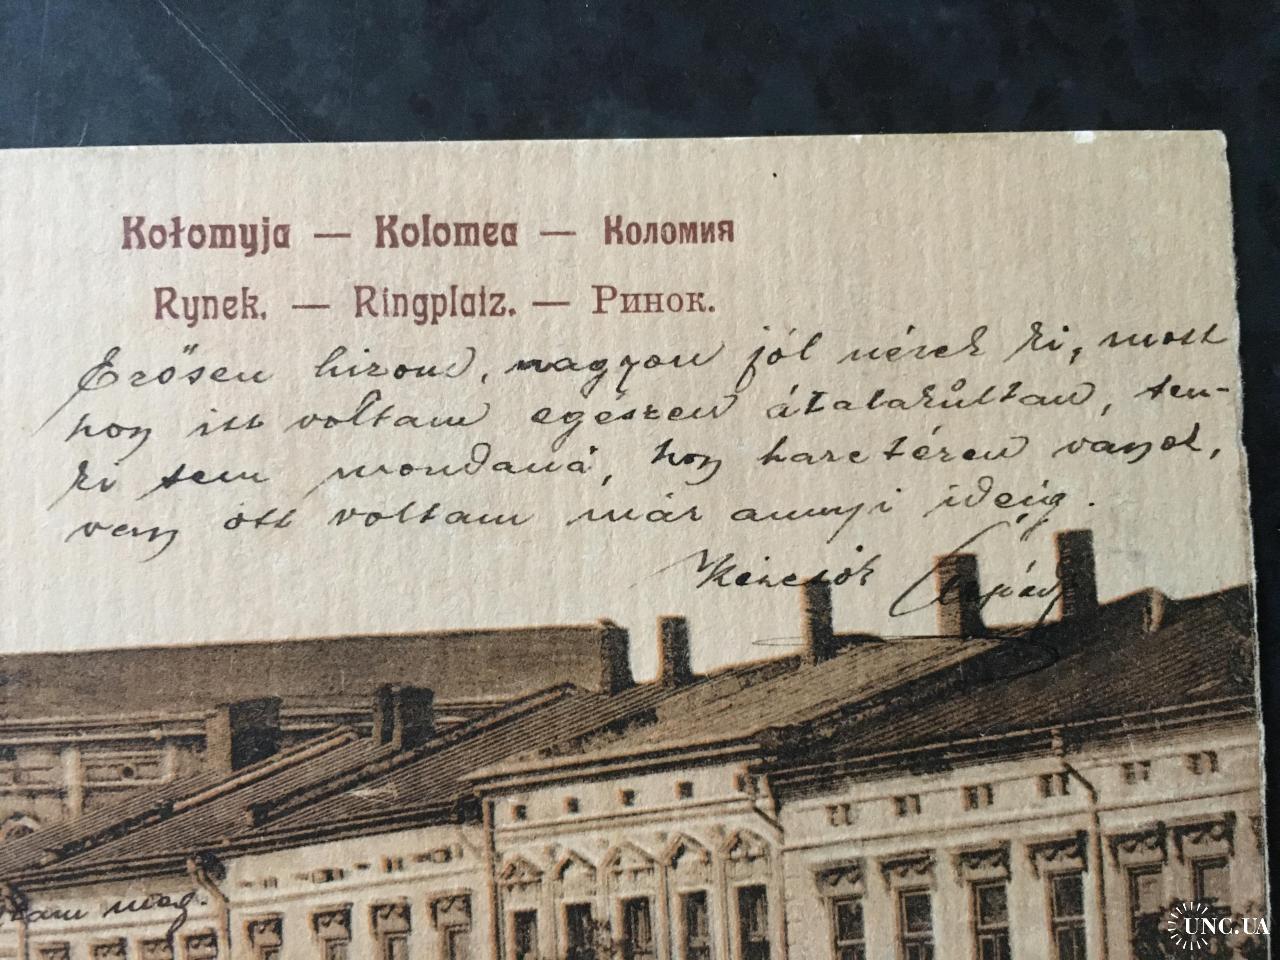 Kołomyja — Kolomea — Коломия
Rynek. — Ringplatz. — Ринок.
Erősen hizom, nagyon jól nézek ki, most
hogy itt voltam egészen átalakúltam, sen-
ki sem mondaná, hogy harctéren vagyok,
vagy ott voltam már annyi ideig.
Árpád
tam meg.
UNC.UA